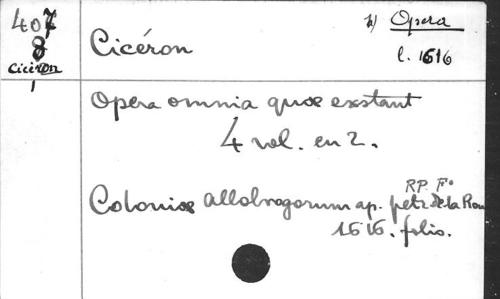 407
8
Cicéron
1
Cicéron
k) Opera
l. 1616
Opera omnia quae exstant
4 vol. en 2.
RP. F°
Coloniae allobrogorum ap. petr. de la Rou
1616. folio.